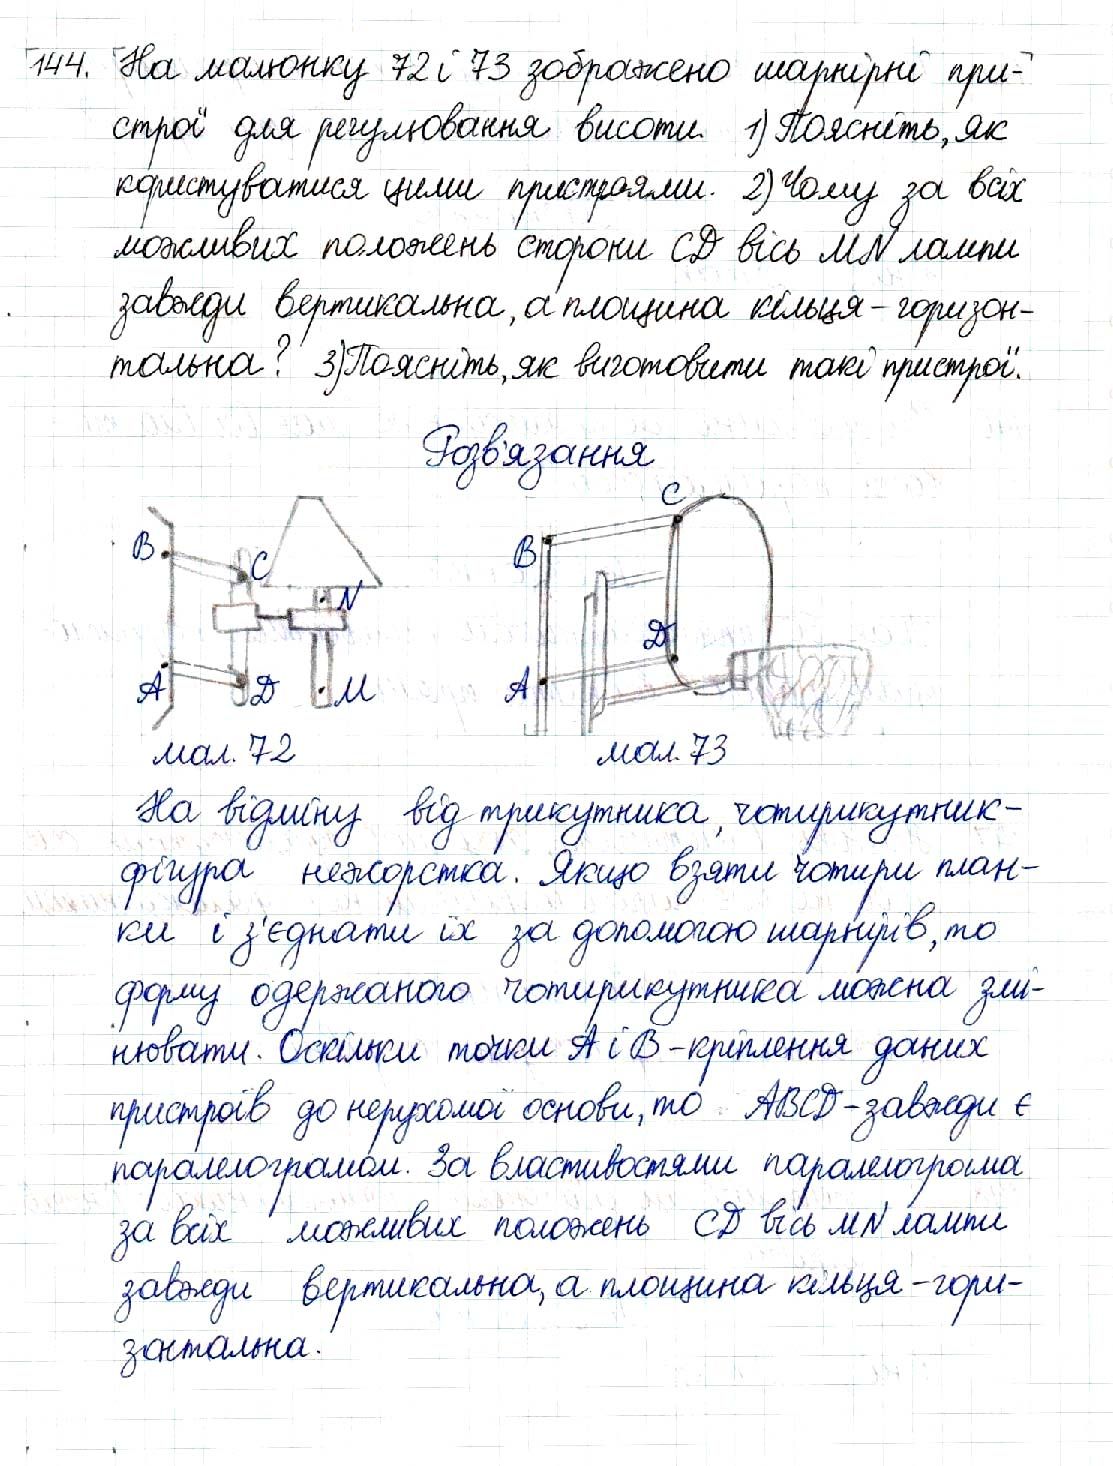 144. На малюнку 72 і 73 зображено шарнірні при-
строї для регулювання висоти. 1) Поясніть, як
користуватися цими пристроями. 2) Чому за всіх
можливих положень сторони CD вісь MN лампи
завжди вертикальна, а площина кільця - горизон-
тальна? 3) Поясніть, як виготовити такі пристрої.
Розв'язання
B C N A D M
B C D A
мал. 72 мал. 73
На відміну від трикутника, чотирикутник-
фігура нежорстка. Якщо взяти чотири план-
ки і з'єднати їх за допомогою шарнірів, то
форму одержаного чотирикутника можна змі-
нювати. Оскільки точки A і B - кріплення даних
пристроїв до нерухомої основи, то ABCD - завжди є
паралелограмом. За властивостями паралелограма
за всіх можливих положень CD вісь MN лампи
завжди вертикальна, а площина кільця - гори-
зонтальна.